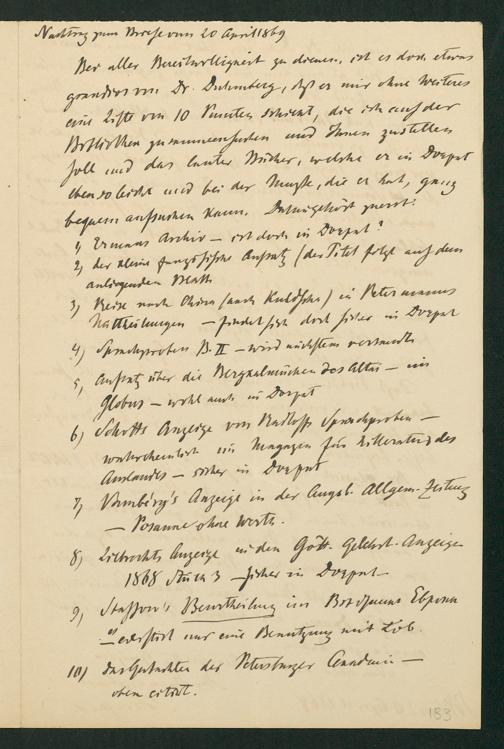 Nachtrag zum Briefe vom 20 April 1869
Bei aller Bereitwilligkeit zu dienen, ist es doch etwas
grandios von Dr. Duhmberg, daß er mir ohne Weiteres
eine Liste von 10 Punkten schickt, die ich auf der
Bibliothek zusammensuchen und Ihnen zustellen
soll und das lauter Bücher, welche er in Dorpat
ebenso leicht und bei der Musse, die er hat, ganz
bequem aufsuchen kann. Dahin gehört zuerst:
1) Ermans Archiv – ist doch in Dorpat?
2) der kleine französische Aufsatz (der Titel folgt auf dem
anliegenden Blatt
3) Reise nach China (nach Kuldscha) in Petermanns
Mittheilungen – findet sich doch sicher in Dorpat
4) Sprachproben B. II – wird nächstens versandt
5) Aufsatz über die Bergkalmücken des Altai – im
Globus – wohl auch in Dorpat
6) Schotts Anzeige von Radloffs Sprachproben –
wahrscheinlich im Magazin für Litteratur des
Auslandes – sicher in Dorpat
7) Vambéry's Anzeige in der Augsb. Allgem. Zeitung
– Posaune ohne Werth.
8) Liebrechts Anzeige in den Gött. Gelehrt. Anzeigen
1868 Stück 3 – sicher in Dorpat
9) Beurtheilung im
nur eine Benutzung mit Lob.
10) das Gutachten der Petersburger Academie –
oben citirt.
183